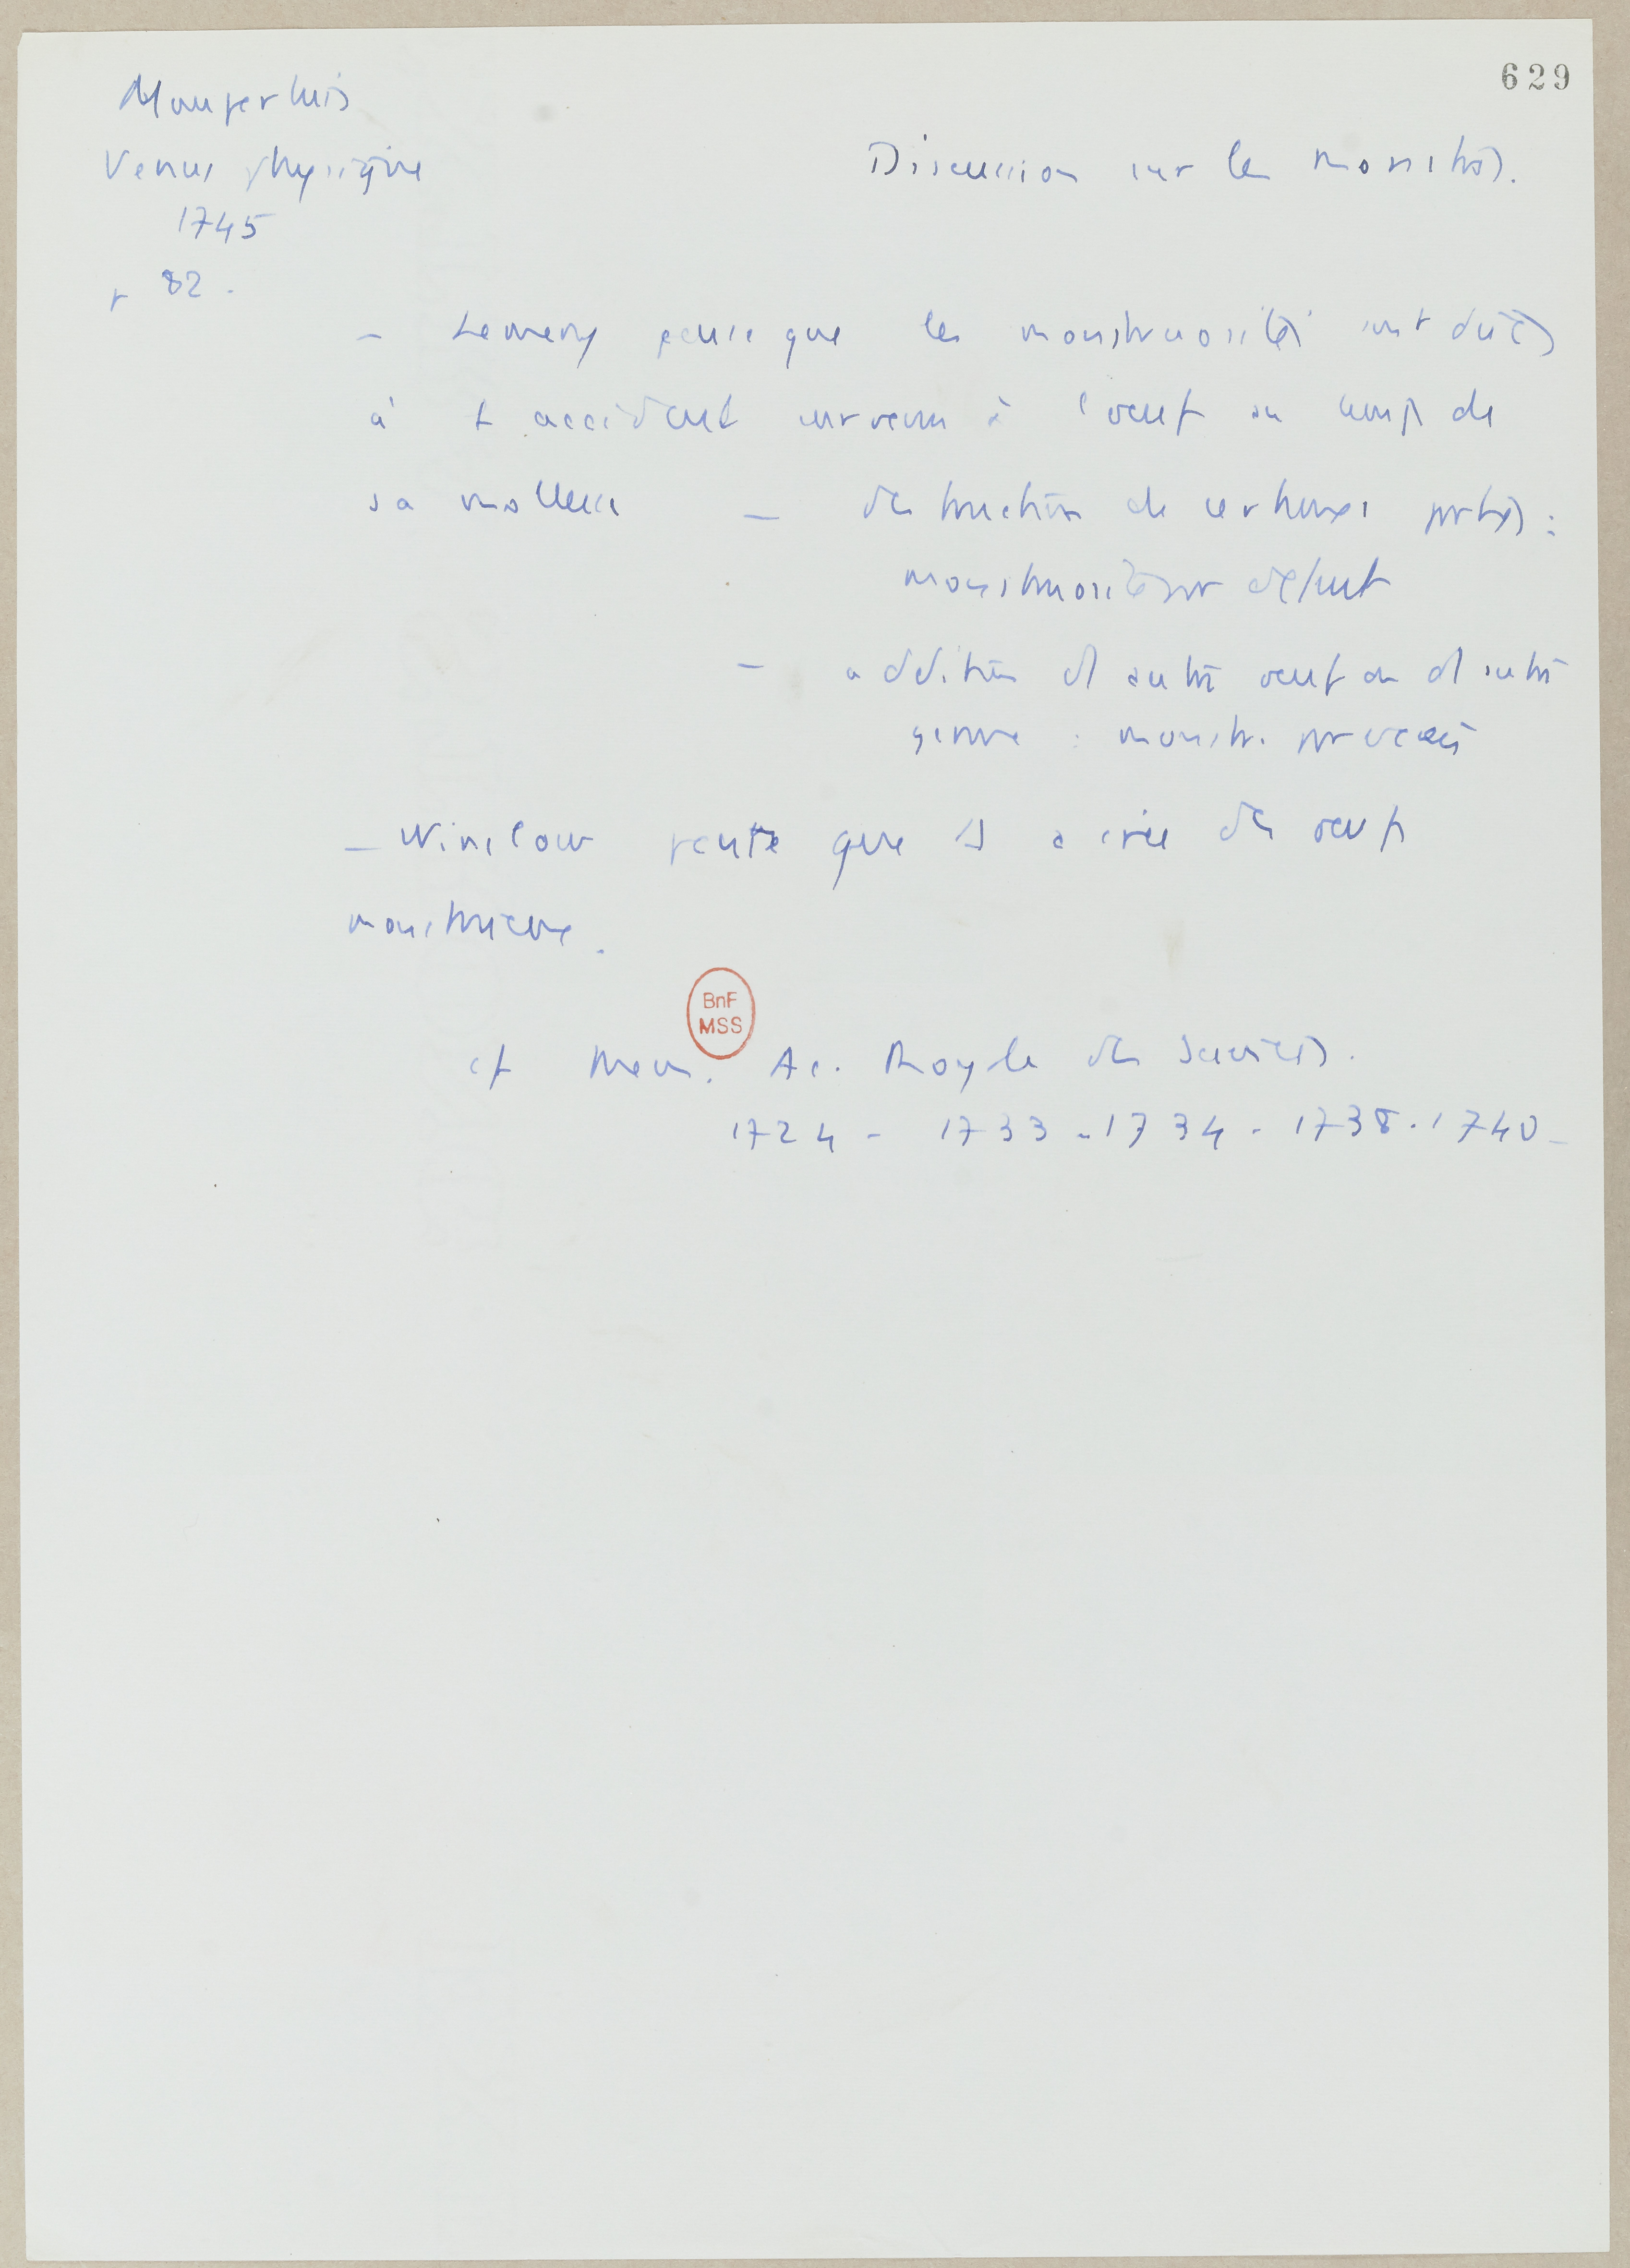 629
Maupertuis
Venus physique
1745
p 82.
Discussion sur les monstres.
- Lemery pense que les monstruosités sont dues
à l'accident survenu à l'oeuf au temps de
sa mollesse - destruction de certaines parties :
monstruosité par défaut
- addition d'autre oeuf ou d'autre
germe : monstr. par excès
- Winslow pense que D a créé des oeufs
monstrueux.
BnF
MSS
cf Mem. Ac. Royale des Sciences.
1724 - 1733 - 1734 - 1738 - 1740 -